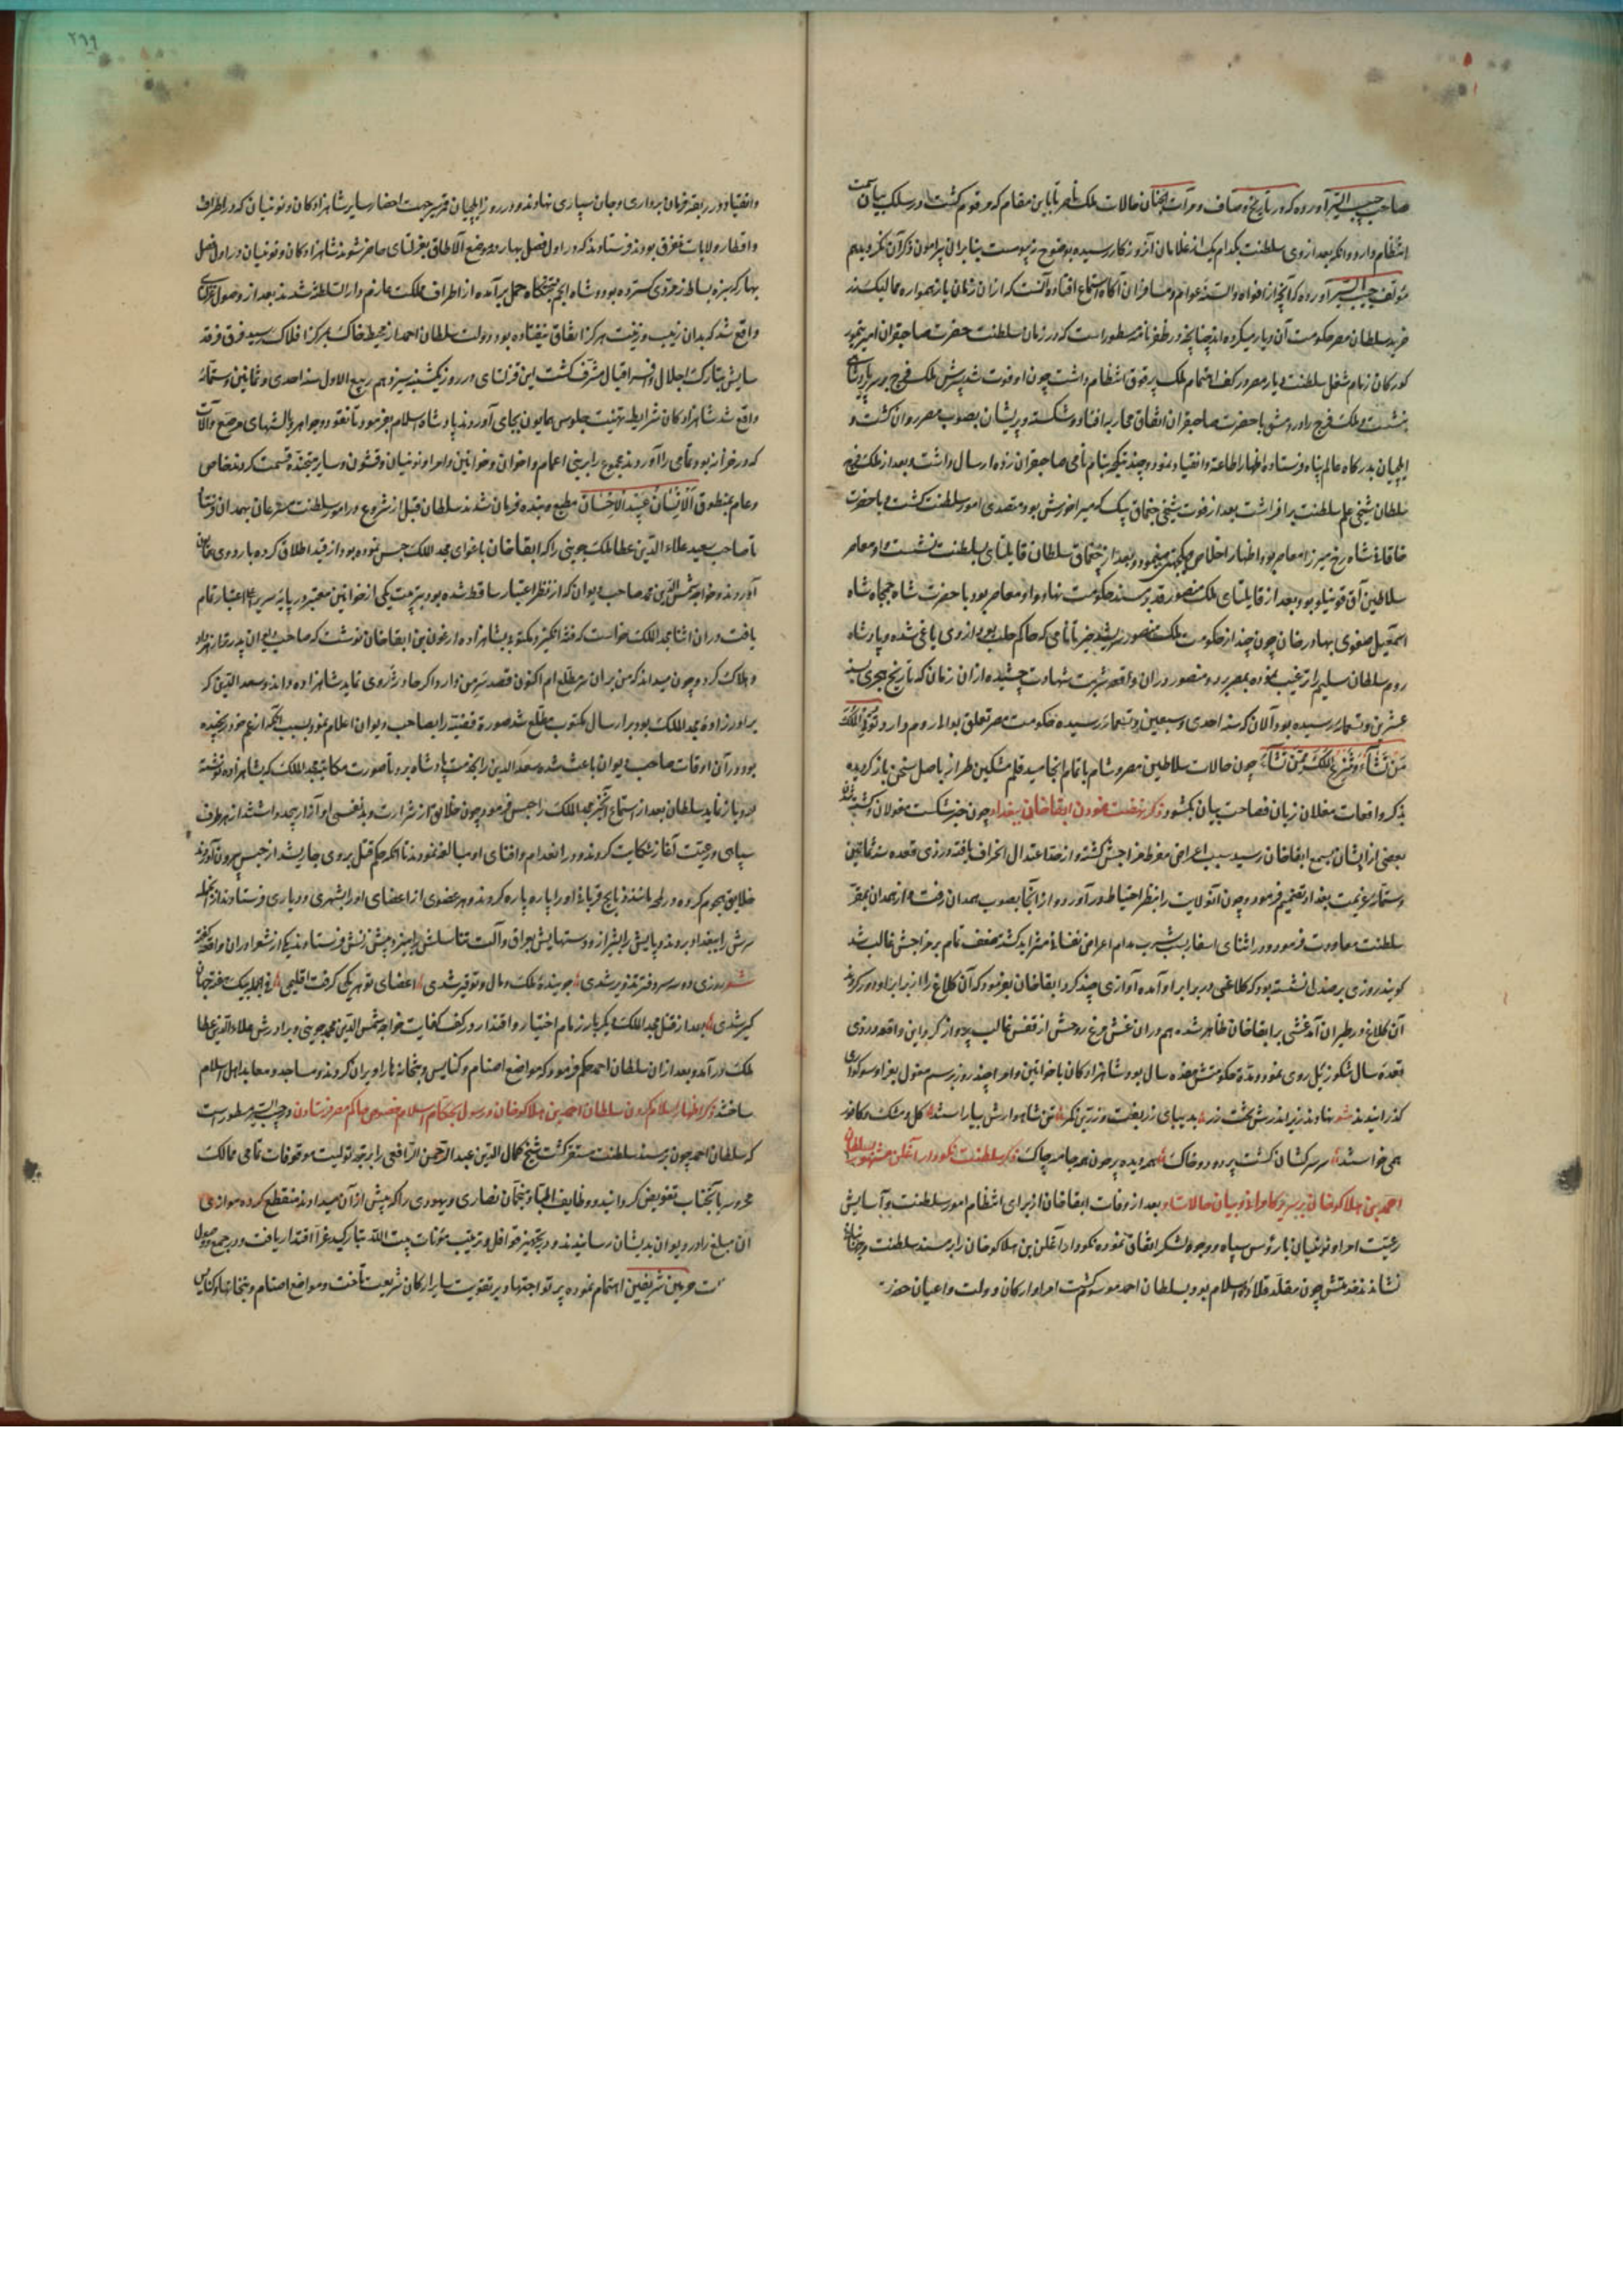 صاحب حبیب السیر آورده که در تاریخ وصاف و مرآت الجنان حالات ملک ناصر تا باین مقام که مرقوم کشت در سلک بیان سمت
انتظام دارد و آنکه بعد از وی سلطنت بکدام یک از غلامان آن روزکار رسیده بوضوح نه پیوست بنابران پیرامون ذکر آن نکردیدیم
مؤلف حبیب السیر آورده که آنچه از افواه و السنه عوام و مسافران آکاه استماع افتاده آنست که از ان زمان باز همواره ممالیک زر
خرید سلطان مصر حکومت آن دیار میکرده اند چنانچه در ظفرنامه مسطور است که در زمان سلطنت حضرت صاحبقران امیر تیمور
کورکان زمام شغل سلطنت دیار مصر در کف اهتمام ملک برقوق انتظام داشت چون او فوت شد پسرش ملک فرج بر سریر پادشاهی
بنشست و ملک فرج را در دمشق با حضرت صاحبقران اتفاق محاربه افتاد و شکسته و پریشان بصوب مصر روان کشت و
ایلچیان بدرکاه عالم پناه فرستاده اظهار اطاعت و انقیاد نمود و چند تنکچه بنام نامی صاحبقران زده ارسال داشت و بعد از ملک فرج
سلطان شیخی علم سلطنت برافراشت بعد از فوت شیخی چقماق بیک که میراخورش بود متصدی امور سلطنت کشت و با حضرت
خاقانی شاه رخ میرزا معاصر بود اظهار اخلاص و یکجهتی مینمود و بعد از چقماق سلطان قایتبای بسلطنت نشست و معاصر
سلاطین آق قوینلو بود بعد از قایتبای ملک منصور قدم بر مسند حکومت نهاد و او معاصر بود با حضرت شاه جمجاه شاه
اسمعیل صفوی بهادر خان چون چند از حکومت ملک منصور
روم سلطان سلیم را ترغیب نموده بمصر برد و منصور در ان واقعه شربت شهادت چشیده از ان زمان که تاریخ هجری بسنه
عشرین و تسعمایه رسیده بود الآن که سنه احدی و سبعین و تسعمایه رسیده حکومت مصر تعلق بوالی روم دارد تُؤتِی المُلکَ
مَن تَشَاءُ وَتَنزِعُ المُلکَ مِمَّن تَشَاءُ چون حالات سلاطین مصر و شام باتمام انجامید قلم مشکین طراز باصل سخن باز کردیده
بذکر واقعات مغلان زبان فصاحت بیان بکشود ذکر نهضت نمودن ابقا خان ببغداد چون خبر شکست مغولان و کشته شدن
بعضی از ایشان بسمع ابقا خان رسید بسبب اعراض مفرط مزاجش کشته و از حد اعتدال انحراف یافته در ذی قعده سنه ثمانین
و ستمایه عزیمت بغداد تصمیم فرمود و چون آنولایت را بنظر احتیاط درآورد و از آنجا بصوب همدان رفت و از همدان بمقر
سلطنت معاودت فرمود و در اثنای اسفار بسبب شرب مدام اعراض نفسانی متزاید کشته ضعف تمام بر مزاجش غالب شد
کویند روزی بر صندلی نشسته بود که کلاغی در برابر او آمده آوازی چند کرد ابقا خان بفرمود که آن کلاغ را از برابر او دور کردند
آن کلاغ در طیران آمد غشی بر ابقا خان ظاهر شده هم در ان غش مرغ روحش از قفس قالب پرواز کرد و این واقعه در ذی
قعده سال شکور ئیل روی نمود و مدت حکومتش هفده سال بود و شاهزادکان با خواتین و امرا چند روز برسم مغول بعزا و سوکواری
کذرانیدند شعر نهادند زیراندرش تخت زر بدیبای زربفت و زرین کمر تن شاهوارش بیاراستند کل و مشک و کافور
همی خواستند سر سرکشان کشت پردود و خاک همه دیده پرخون همه جامه چاک ذکر سلطنت نکودار اغلن مشهور بسلطان
احمد بن هلاکو خان بر سریر کامرانی و بیان حالات او بعد از وفات ابقا خان از برای انتظام امور سلطنت و آسایش
رعیت امرا و نوئینان با رؤس سپاه و وجوه لشکر اتفاق نموده نکودار اغلن بن هلاکو خان را بر مسند سلطنت و جهانبانی
نشاندند خدمتش چون مقلد قلاده اسلام بود بسلطان احمد موسوم کشت امرا و ارکان دولت و اعیان حضرت
۲۶۹
و انقیاد در ربقه فرمان برداری و جان سپاری نهادند و در روز ایلچیان قمر سیر جهت احضار سایر شاهزادکان و نوئینان که در اطراف
و اقطار ولایات متفرق بودند فرستادند که در اول فصل بهار در موضع آلاطاق بقرلتای حاضر شوند شاهزادکان و نوئینان در اول فصل
بهار که سبزه بساط زمردی کسترده بود و شاه انجم بتختکاه حمل برآمده از اطراف مملکت عازم دار السلطنه شدند بعد از وصول قرلتای
واقع شد که بدان زیب و زینت هرکز اتفاق نیفتاده بود و دولت سلطان احمد از محیط خاک بمرکز افلاک رسید فرق فرقد
سایش بتارک اجلال و افسر اقبال مشرف کشت این قرلتای در روز یکشنبه سیزدهم ربیع الاول سنه احدی و ثمانین و ستمایه
واقع شد شاهزادکان شرایط تهنیت جلوس همایون بجای آوردند پادشاه اسلام بفرمود تا نقود و جواهر و بالشهای مرصع و آلات
که در خزانه بود تمامی را آوردند مجموع را بر بنی اعمام و اخوان و خواتین و امرا و نوئینان و قشون و سایر متجنده قسمت کردند خاص
و عام بمنطوق اَلاِنسَانُ عَبِیدُ الاِحسَان مطیع و بنده فرمان شدند سلطان قبل از شروع در امور سلطنت مسرعان بهمدان فرستاد
تا صاحب سعید علاء الدین عطا ملک جوینی را که ابقا خان باغوای مجد الملک حبس نموده بود از قید اطلاق کرده باردوی همایون
آوردند و خواجه شمس الدین محمد صاحب دیوان که از نظر اعتبار ساقط شده بود بتربیت یکی از خواتین معتبر در پایه سریر اعلی اعتبار تمام
یافت در ان اثنا مجد الملک خواست که فتنه انکیزد مکتوبی بشاهزاده ارغون بن ابقا خان نوشت که صاحب دیوان پدر ترا زهر داد
و هلاک کرد و چون میداند که من بران سر مطلع ام اکنون قصد سر من دارد اکر حادثه روی نماید شاهزاده داند و سعد الدین که
برادرزاده مجد الملک بود بر ارسال مکتوب مطلع شد صورت قضیه را بصاحب دیوان اعلام نمود بسبب آنکه از عم خود رنجیده
بود در آن اوقات صاحب دیوان باعث شده سعد الدین را بخدمت پادشاه برد تا صورت مکاتبه مجد الملک که بشاهزاده نوشته
بود باز نماید سلطان بعد از استماع آن خبر مجد الملک را حبس فرمود چون خلایق از شرارت و بدنفسی او آزار بیحد داشتند از هر طرف
سپاهی و رعیت آغاز شکایت کردند و در انعدام و افنای او مبالغه نمودند تا آنکه حکم قتل بر وی جاری شد از حبس بیرون آوردند
خلایق هجوم کرده در لمحه مانند ذبایح قربانی او را پاره پاره کردند و هر عضوی از اعضای او را بشهری و دیاری فرستادند از انجمله
سرش را ببغداد بردند و پایش را بشیراز و دستهایش بعراق و آلت تناسلش را
شعر روزی دو سه سر دفتر تزویر شدی جوینده ملک و مال و توفیر شدی اعضای تو هر یکی کرفت اقلیمی فی الجمله بیک هفته جهان
کیر شدی بعد از قتل مجد الملک دیکر بار زمام اختیار و اقتدار در کف کفایت خواجه شمس الدین محمد جوینی و برادرش علاء الدین عطا
ملک درآمد و بعد از ان سلطان احمد حکم فرمود که مواضع اصنام و کنایس و بتخانه ها را ویران کردند و مساجد و معابد اهل اسلام
ساختند ذکر اظهار اسلام کردن سلطان احمد بن هلاکو خان و رسول بحکام اسلام خصوص حاکم مصر فرستادن در حبیب السیر مسطورست
که سلطان احمد چون بر مسند سلطنت مستقر کشت شیخ کمال الدین عبد الرحمن الرافعی را برتبه تولیت موقوفات تمامی ممالک
محروسه بآنجناب تفویض کردانید و وظایف اطبا و منجمان نصاری و یهودی را که پیش از آن میدادند منقطع کرده موازی
آن مبلغ را در دیوان بدیشان رسانیدند و در تجهیز قوافل و ترتیب مؤنات بیت الله تبارک
حرمین شریفین اهتمام نموده پرتو اجتهاد بر تقویت سایر ارکان شریعت تافت و مواضع اصنام و بتخانها و کنایس